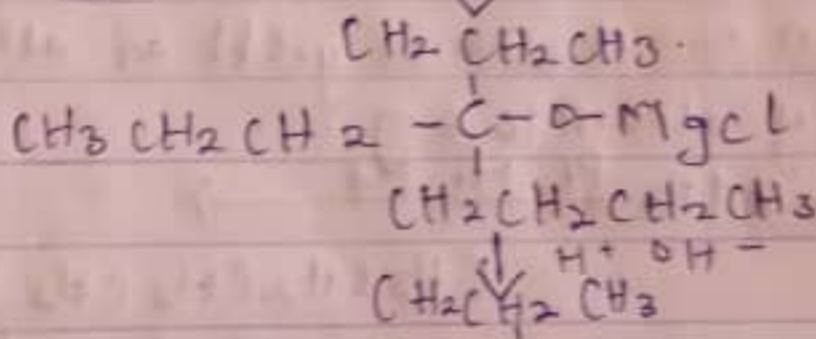 CH2 CH2 CH3.
CH3 CH2 CH2 - C - O - MgCl
CH2 CH2 CH2 CH3
H+ OH-
CH2CH2 CH3